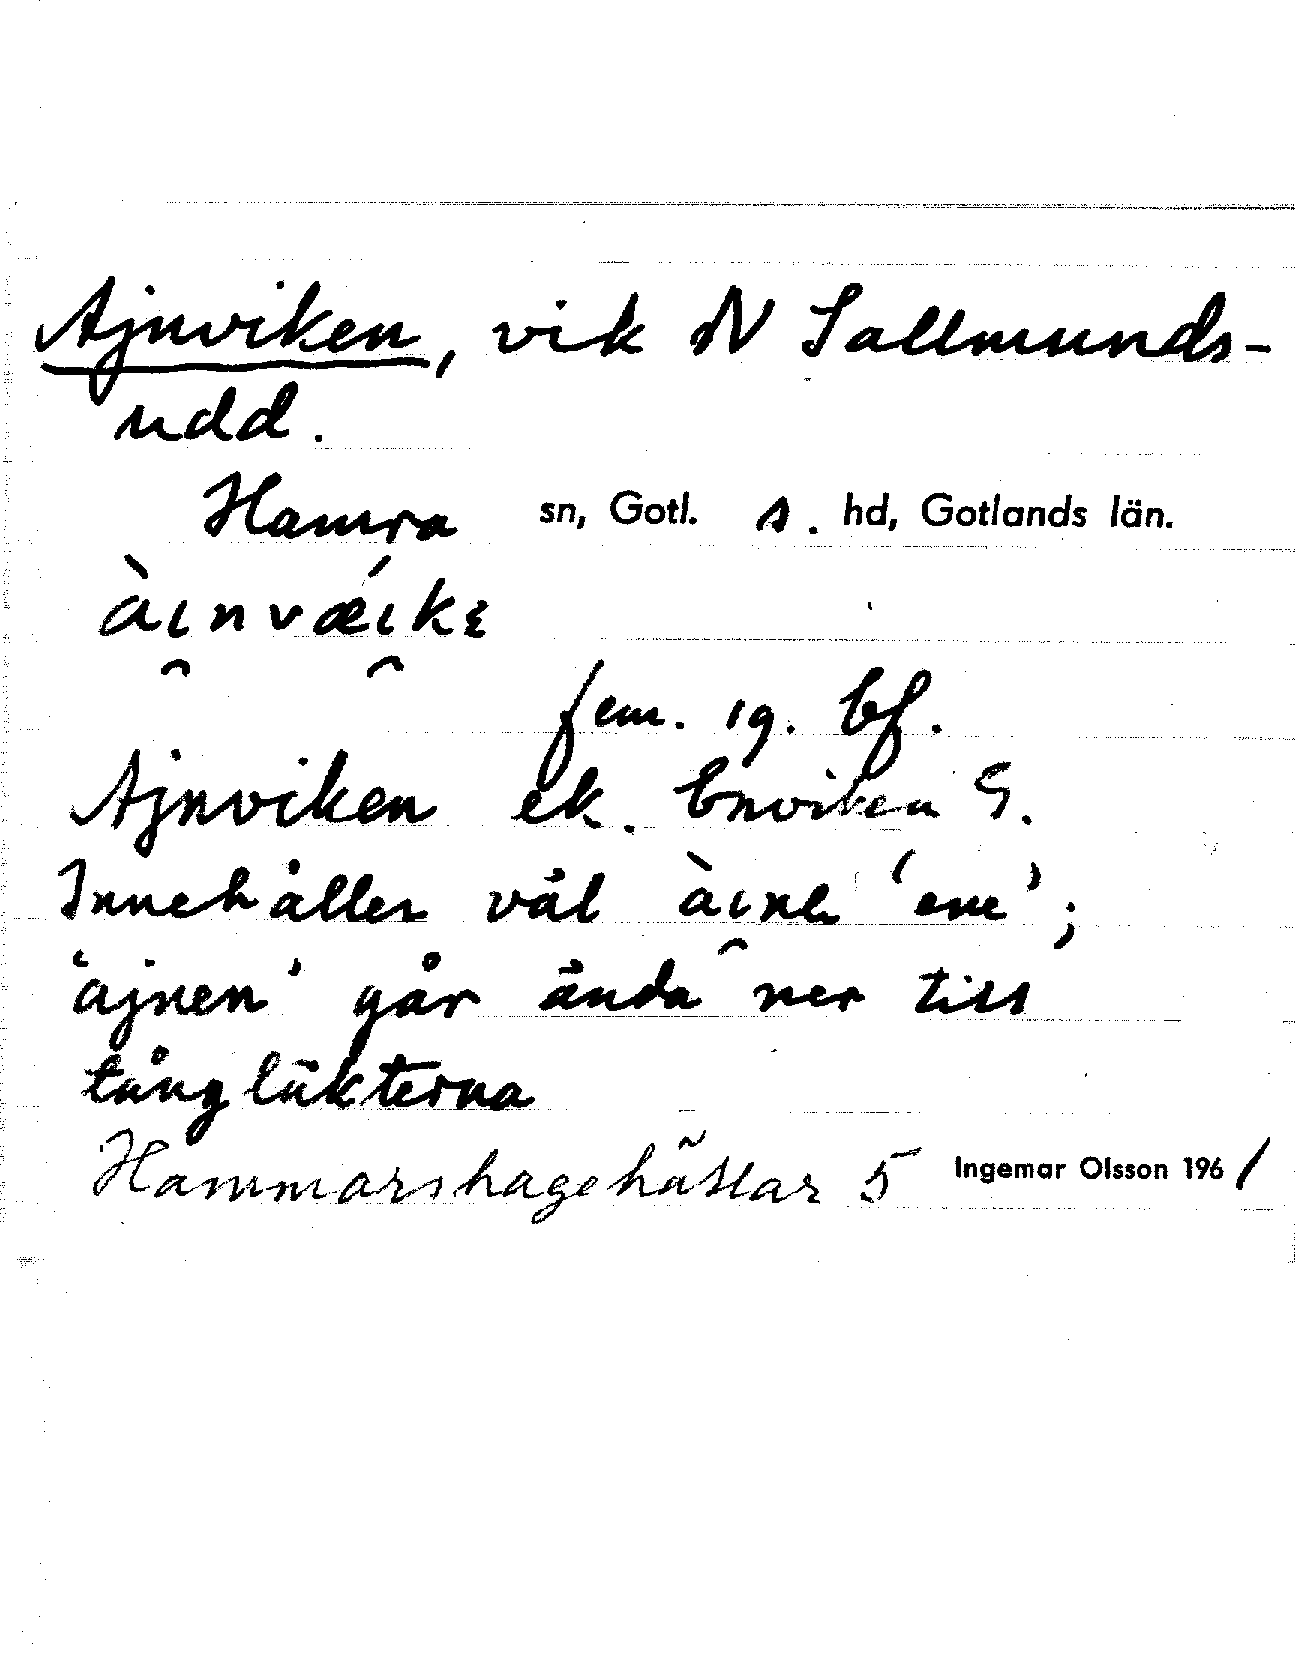 Ajnviken, vik N Sallmunds-
udd.
Hamra sn, Gotl. s. hd, Gotlands län.
fem. sg. bf.
Ajnviken ek. Enviken G.
Innehåller väl 'ene';
'ajnen' går ända ner till
tånglükterna
Hammarshagehällar 5 Ingemar Olsson 1961